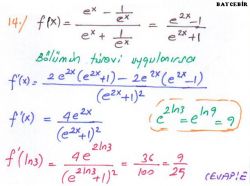 BAYCEBİR
14-/ f(x) = (e^x - 1/e^x) / (e^x + 1/e^x) = (e^2x - 1) / (e^2x + 1)
Bölümün türevi uygulanırsa
f'(x) = (2e^2x(e^2x+1) - 2e^2x(e^2x-1)) / (e^2x+1)^2
f'(x) = 4e^2x / (e^2x+1)^2
e^2ln3 = e^ln9 = 9
f'(ln3) = 4e^2ln3 / (e^2ln3+1)^2 = 36/100 = 9/25
CEVAP: E